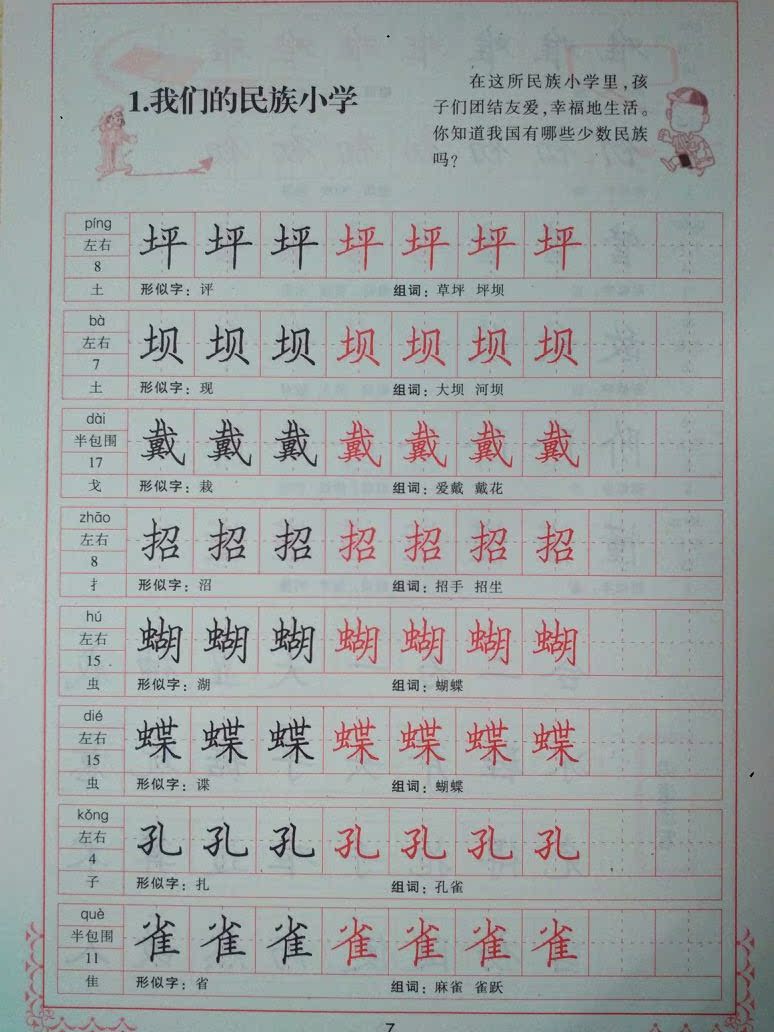 1.我们的民族小学
在这所民族小学里，孩
子们团结友爱，幸福地生活。
你知道我国有哪些少数民族
吗？
píng
左右
8
土
坪 坪 坪 坪 坪 坪 坪
形似字：评 组词：草坪 坪坝
bà
左右
7
土
坝 坝 坝 坝 坝 坝 坝
形似字：现 组词：大坝 河坝
dài
半包围
17
戈
戴 戴 戴 戴 戴 戴 戴
形似字：栽 组词：爱戴 戴花
zhāo
左右
8
扌
招 招 招 招 招 招 招
形似字：沼 组词：招手 招生
hú
左右
15
虫
蝴 蝴 蝴 蝴 蝴 蝴 蝴
形似字：湖 组词：蝴蝶
dié
左右
15
虫
蝶 蝶 蝶 蝶 蝶 蝶 蝶
形似字：谍 组词：蝴蝶
kǒng
左右
4
子
孔 孔 孔 孔 孔 孔 孔
形似字：扎 组词：孔雀
què
半包围
11
隹
雀 雀 雀 雀 雀 雀 雀
形似字：省 组词：麻雀 雀跃
7